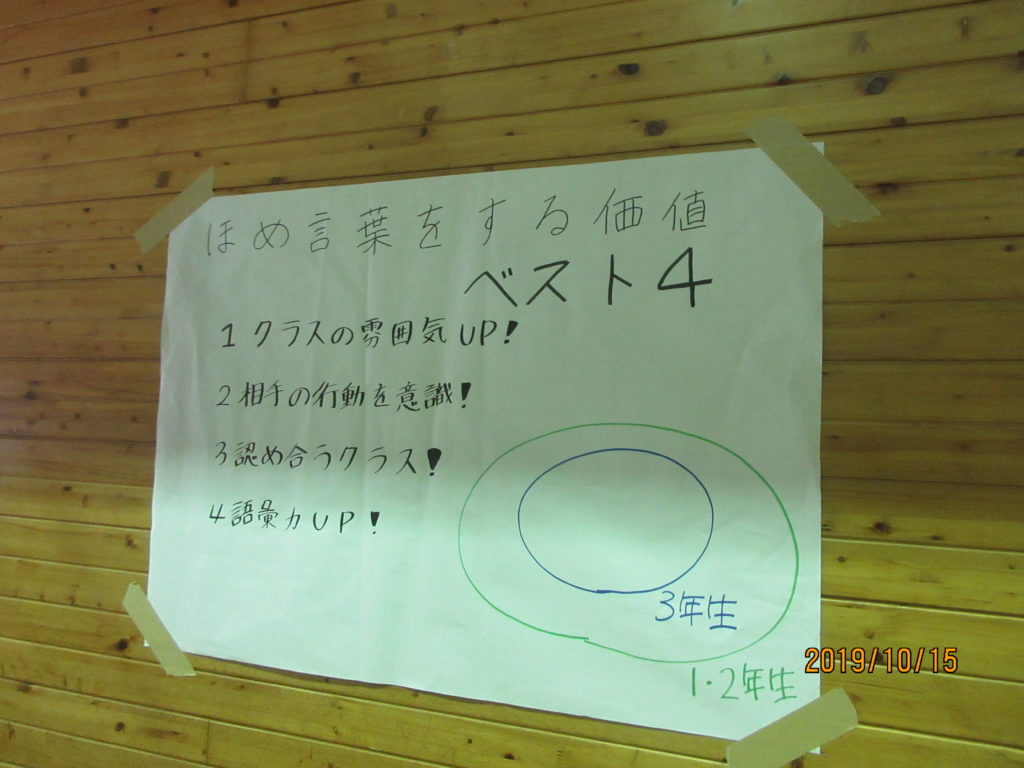 ほめ言葉をする価値
ベスト4
1クラスの雰囲気UP!
2相手の行動を意識!
3認め合うクラス!
4語彙力UP!
3年生
1・2年生
2019/10/15